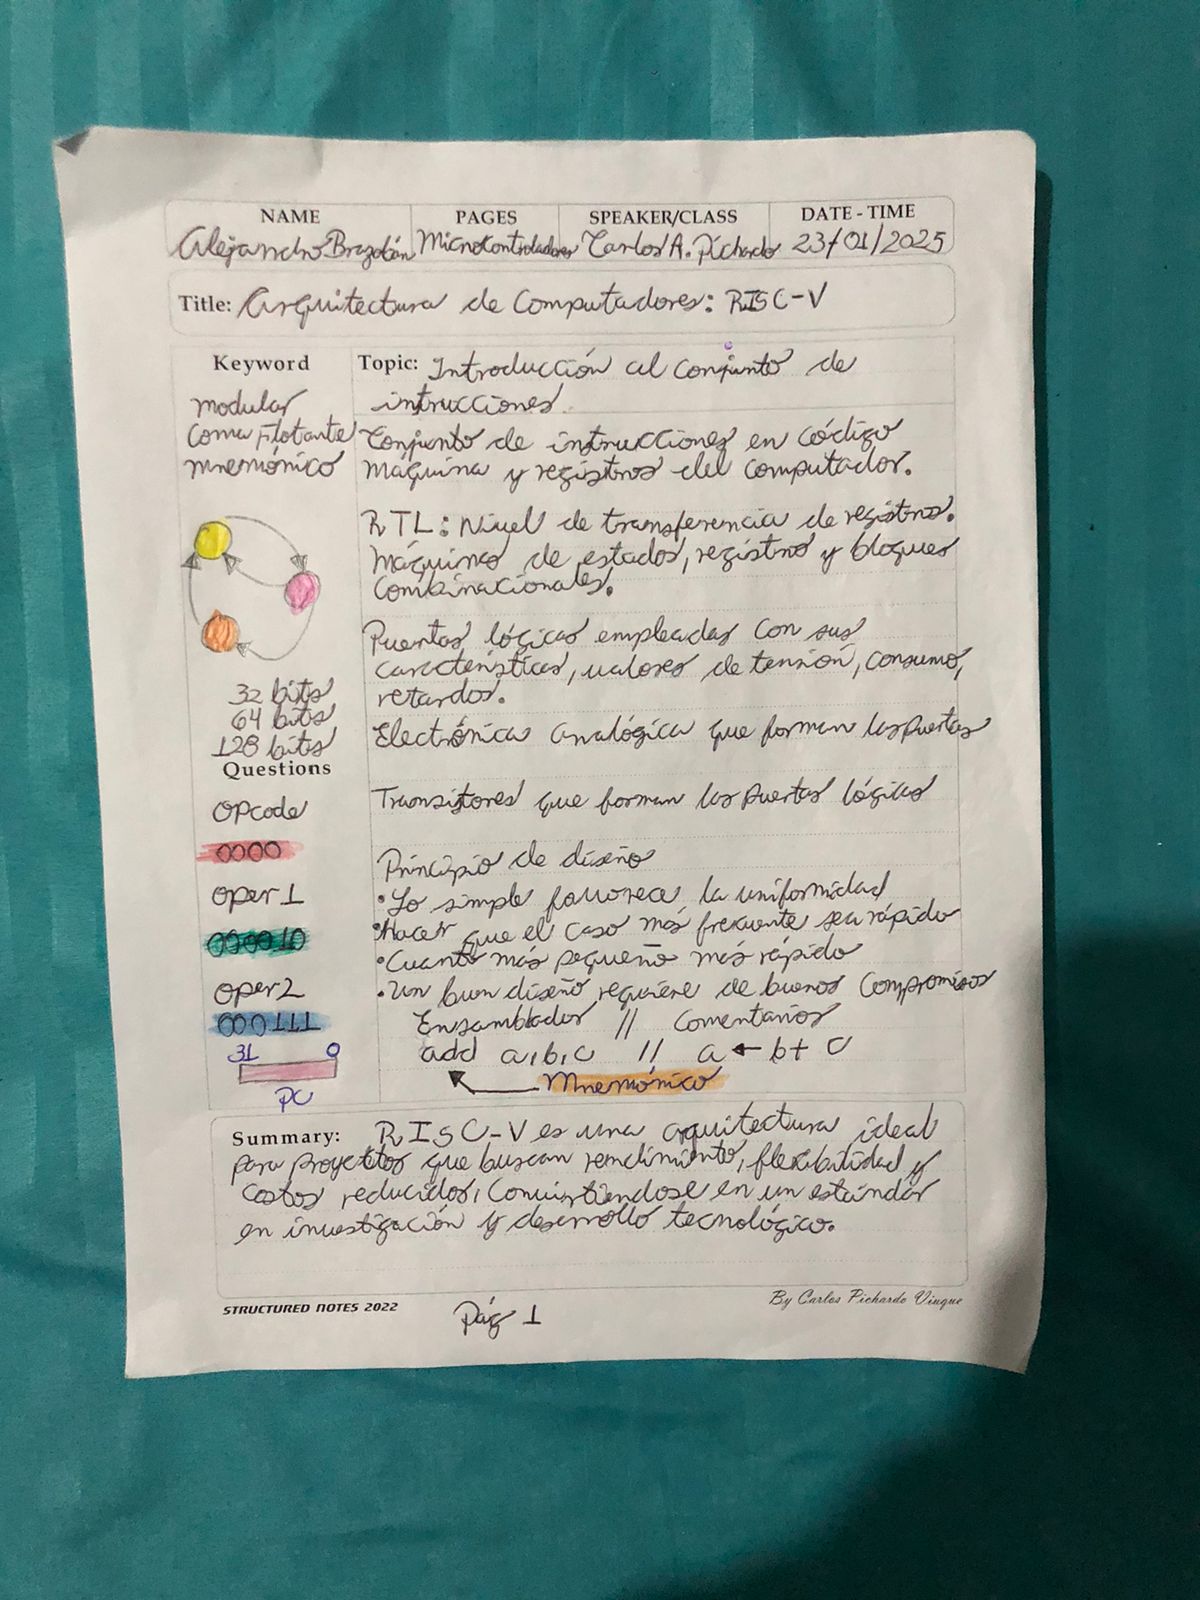 NAME PAGES SPEAKER/CLASS DATE - TIME
Alejandro Brazobán Microcontroladores Carlos A. Pichardo 23/01/2025
Title: Arquitectura de Computadores: RISC-V
Keyword
modular
Coma Flotante
mnemónico
32 bits
64 bits
128 bits
Questions
Opcode
0000
Oper 1
000010
Oper 2
000111
31 0
PC
Topic: Introducción al conjunto de
intrucciones
Conjunto de instrucciones en código
máquina y registros del computador.
RTL: Nivel de transferencia de registros.
Máquinas de estados, registro y bloques
combinacionales.
Puertas lógicas empleadas con sus
características, valores de tensión, consumo,
retardos.
Electrónica analógica que forman las puertas
Transistores que forman las puertas lógicas
Principio de diseño
• Lo simple favorece la uniformidad
• Hacer que el caso más frecuente sea rápido
• Cuanto más pequeño más rápido
• Un buen diseño requiere de buenos compromisos
Ensamblador // Comentarios
add a, b, c // a ← b + c
Mnemónico
Summary: RISC-V es una arquitectura ideal
para proyectos que buscan rendimiento, flexibilidad y
costos reducidos, convirtiendose en un estándar
en investigación y desarrollo tecnológico.
STRUCTURED NOTES 2022
Pág 1
By Carlos Pichardo Viuque